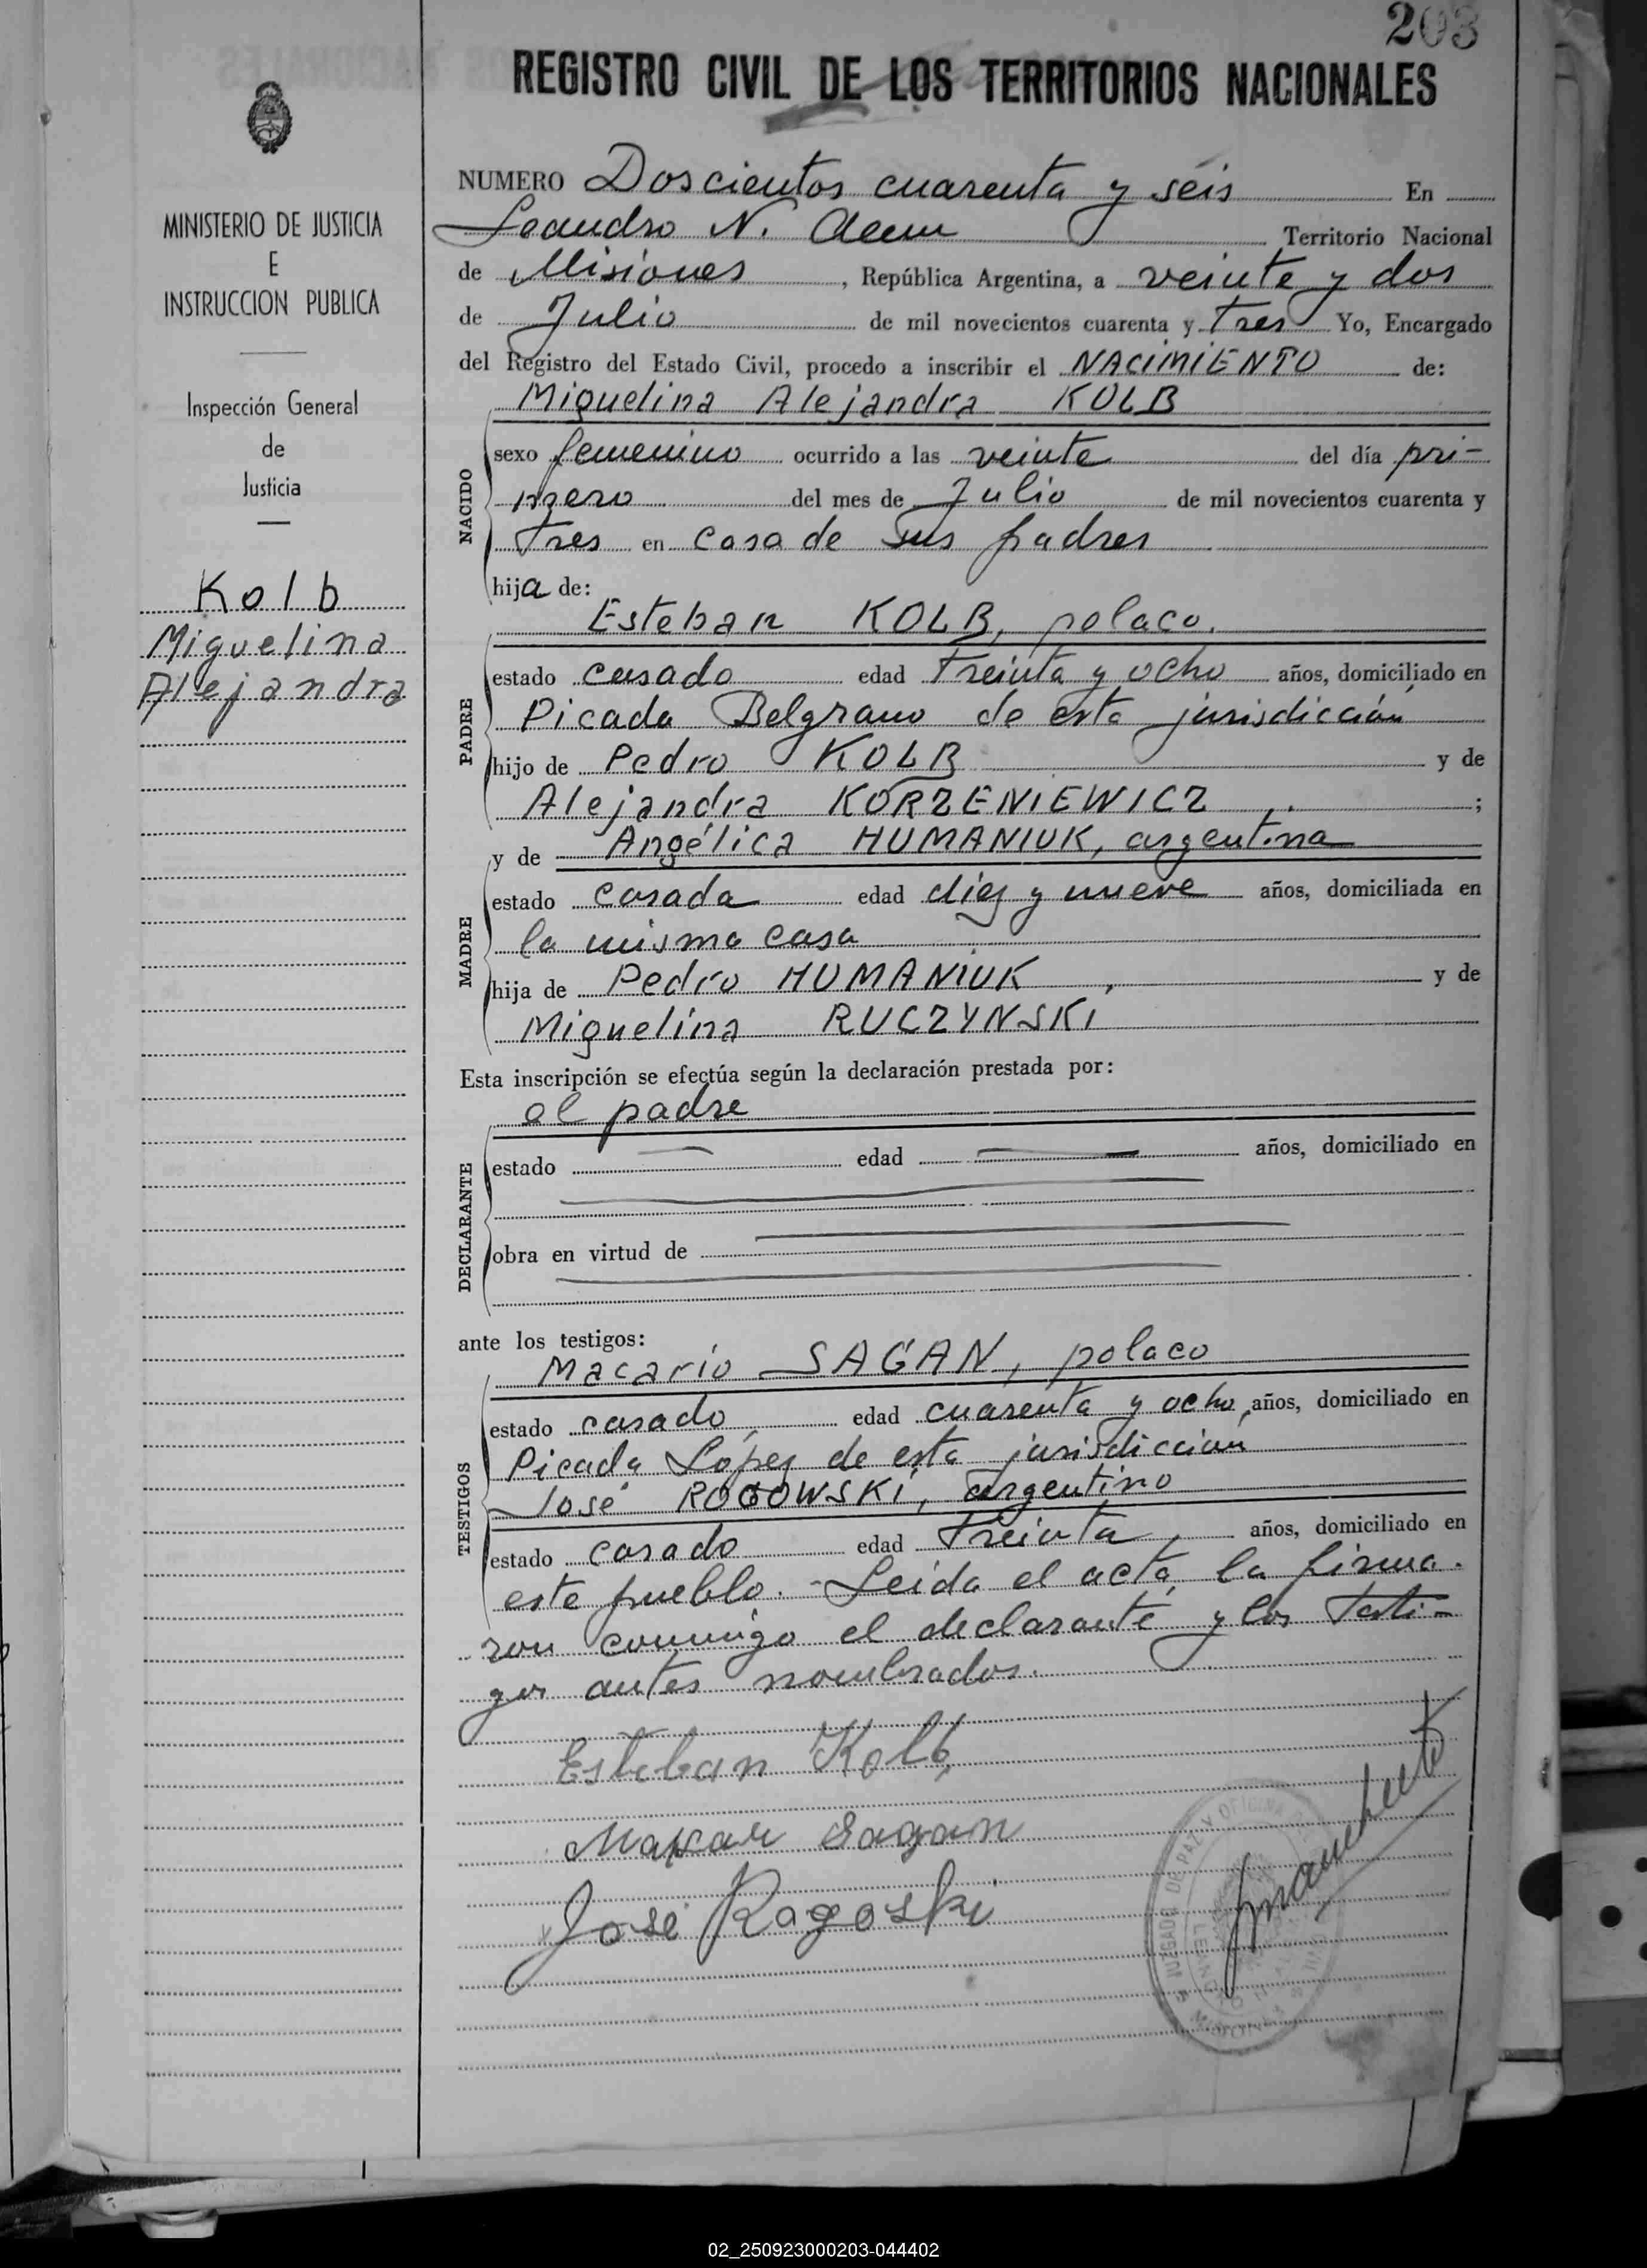 203
REGISTRO CIVIL DE LOS TERRITORIOS NACIONALES
MINISTERIO DE JUSTICIA
E
INSTRUCCION PUBLICA
Inspección General
de
Justicia
Kolb
Miguelina
Alejandra
NUMERO Doscientos cuarenta y séis En
Leandro N. Alem Territorio Nacional
de Misiones, República Argentina, a veinte y dos
de Julio de mil novecientos cuarenta y tres Yo, Encargado
del Registro del Estado Civil, procedo a inscribir el NACIMIENTO de:
Miguelina Alejandra KOLB
NACIDO
sexo femenino ocurrido a las veinte del día pri-
mero del mes de Julio de mil novecientos cuarenta y
tres en casa de sus padres
hija de:
Esteban KOLB, polaco.
PADRE
estado casado edad treinta y ocho años, domiciliado en
Picada Belgrano de esta jurisdicción
hijo de Pedro KOLB y de
Alejandra KORZENIEWICZ ;
y de Angélica HUMANIUK, argentina
MADRE
estado casada edad diez y nueve años, domiciliada en
la misma casa
hija de Pedro HUMANIUK, y de
Miguelina RUCZYNSKI
Esta inscripción se efectúa según la declaración prestada por:
el padre
DECLARANTE
estado edad años, domiciliado en
obra en virtud de
ante los testigos:
Macario SAGAN, polaco
TESTIGOS
estado casado edad cuarenta y ocho, años, domiciliado en
Picada López de esta jurisdicción
José ROGOWSKI, argentino
estado casado edad treinta, años, domiciliado en
este pueblo. - Leida el acta, la firma-
ron conmigo el declarante y los testi-
gos antes nombrados.
Esteban Kolb
Makar Sagan
José Ragoski
JUZGADO DE PAZ Y OFICINA
MISIONES
02_250923000203-044402